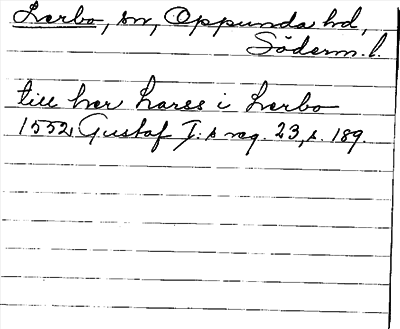 Lerbo, sn, Oppunda hd,
Söderm. l.
till her Lares i Lerbo
1552 Gustaf I:s reg. 23, s. 189.